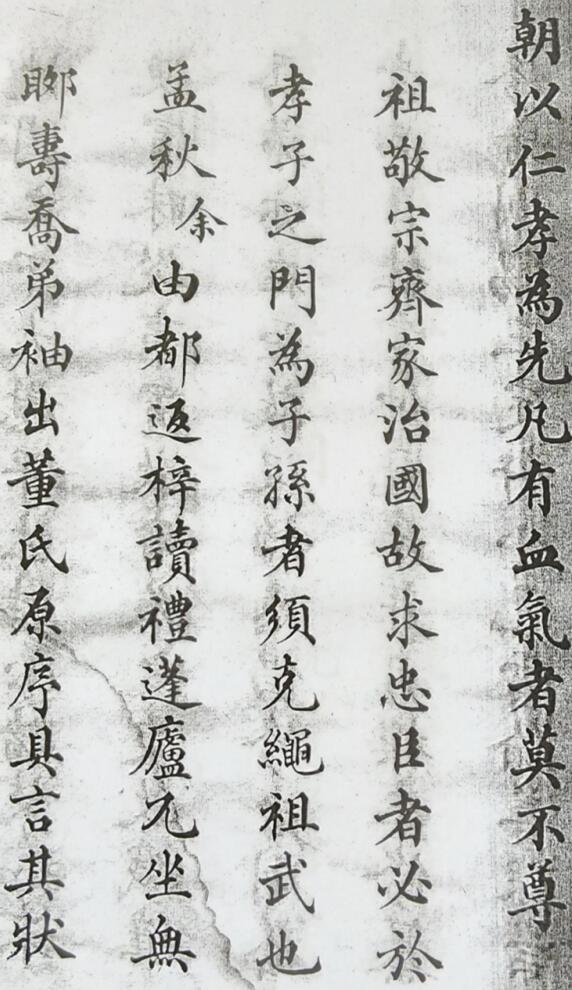 朝以仁孝為先凡有血氣者莫不尊
祖敬宗齊家治國故求忠臣者必於
孝子之門為子孫者須克繩祖武也
孟秋余由都返梓讀禮蓬廬兀坐無
聊壽喬弟袖出董氏原序具言其狀